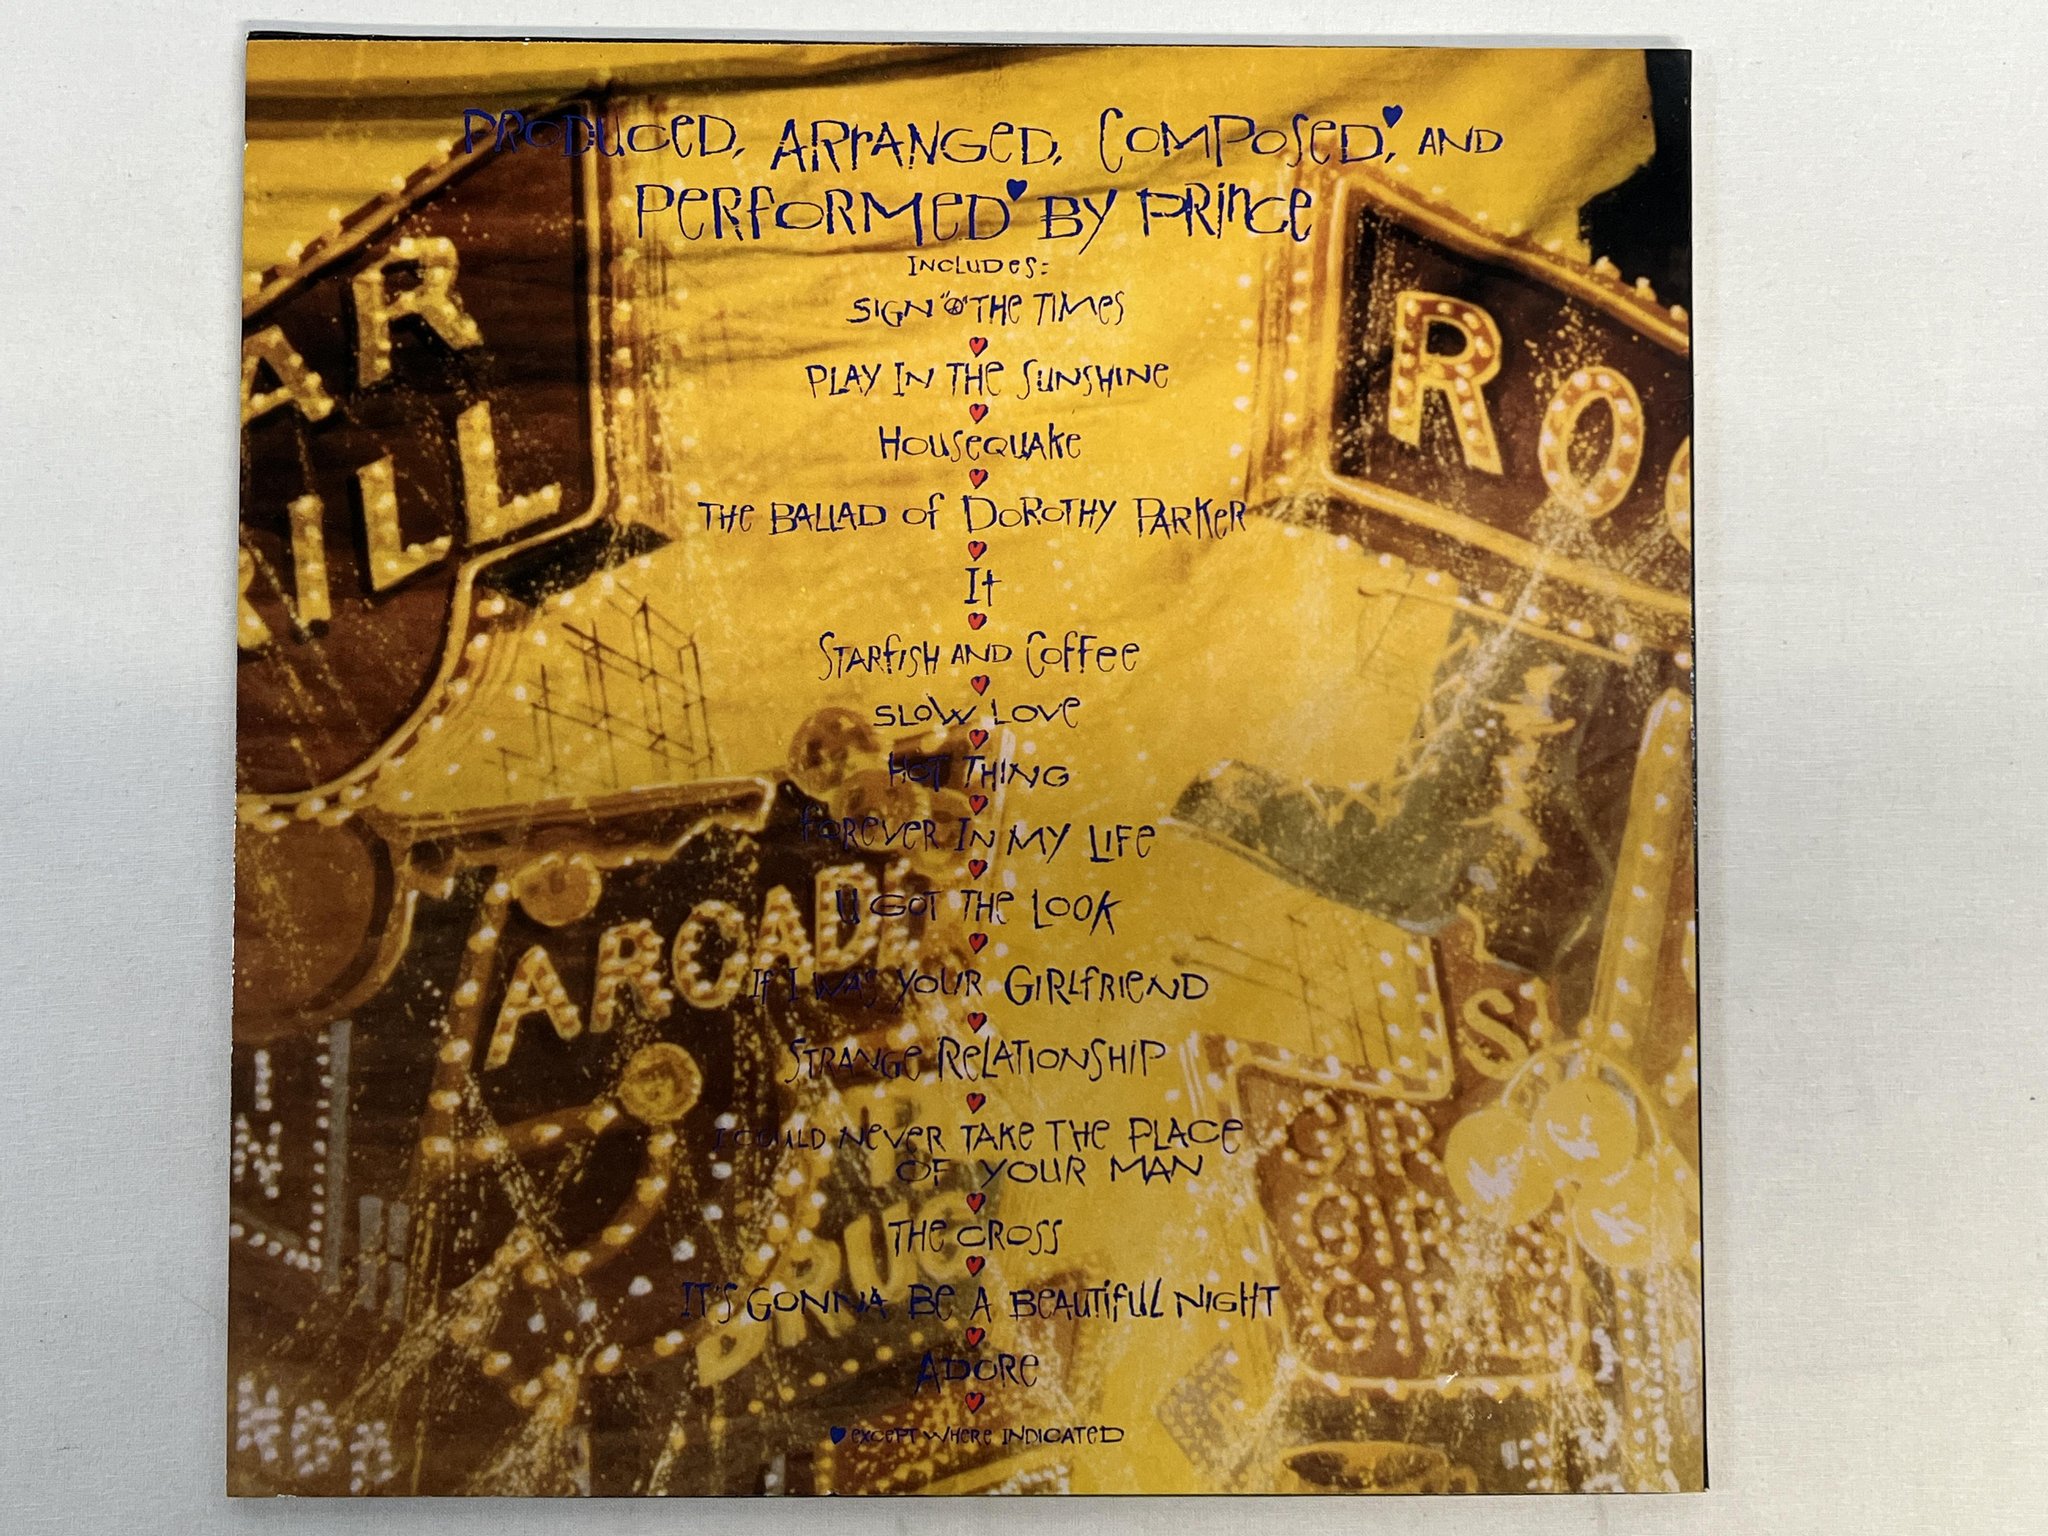 PRODUCED, ARRANGED, COMPOSED, AND
PERFORMED BY PRINCE
INCLUDES:
SIGN "☮" THE TIMES
PLAY IN THE SUNSHINE
HOUSEQUAKE
THE BALLAD OF DOROTHY PARKER
IT
STARFISH AND COFFEE
SLOW LOVE
HOT THING
FOREVER IN MY LIFE
U GOT THE LOOK
IF I WAS YOUR GIRLFRIEND
STRANGE RELATIONSHIP
I COULD NEVER TAKE THE PLACE
OF YOUR MAN
THE CROSS
IT'S GONNA BE A BEAUTIFUL NIGHT
ADORE
EXCEPT WHERE INDICATED
AR
ILL
RO
ARCADE
DRUG
GIR
GIRL
GIRL